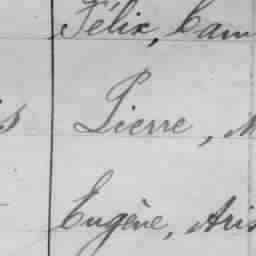 Félix, Cam
s Pierre, M
Eugène, Aris